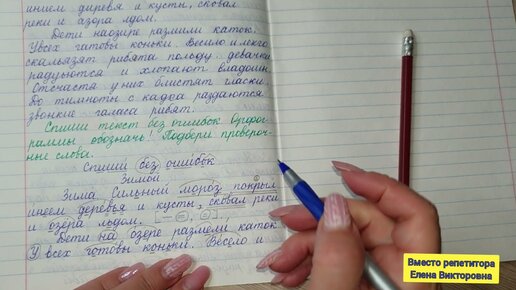 инеем диревя и кусты, сковал
реки и азора лдом.
Дети наозире размили каток.
Увсех гатовы коньки. Весило и легко
скальзят рибята польду. девачки
радуются и хлопают владоши.
Отсчастя у них блистят гласки.
До тимноты с кадка раздаются
звонкие галаса рибят.
Спиши текст без ошибок. Орфог-
раммы обозначь! Подбери провероч-
ные слова.
Спиши без ошибок
Зимой.
Зима. Сильный мороз покрыл
инеем деревья и кусты, сковал реки
и озёра льдом.
Дети на озере размели каток
У всех готовы коньки. Весело и
Вместо репетитора
Елена Викторовна